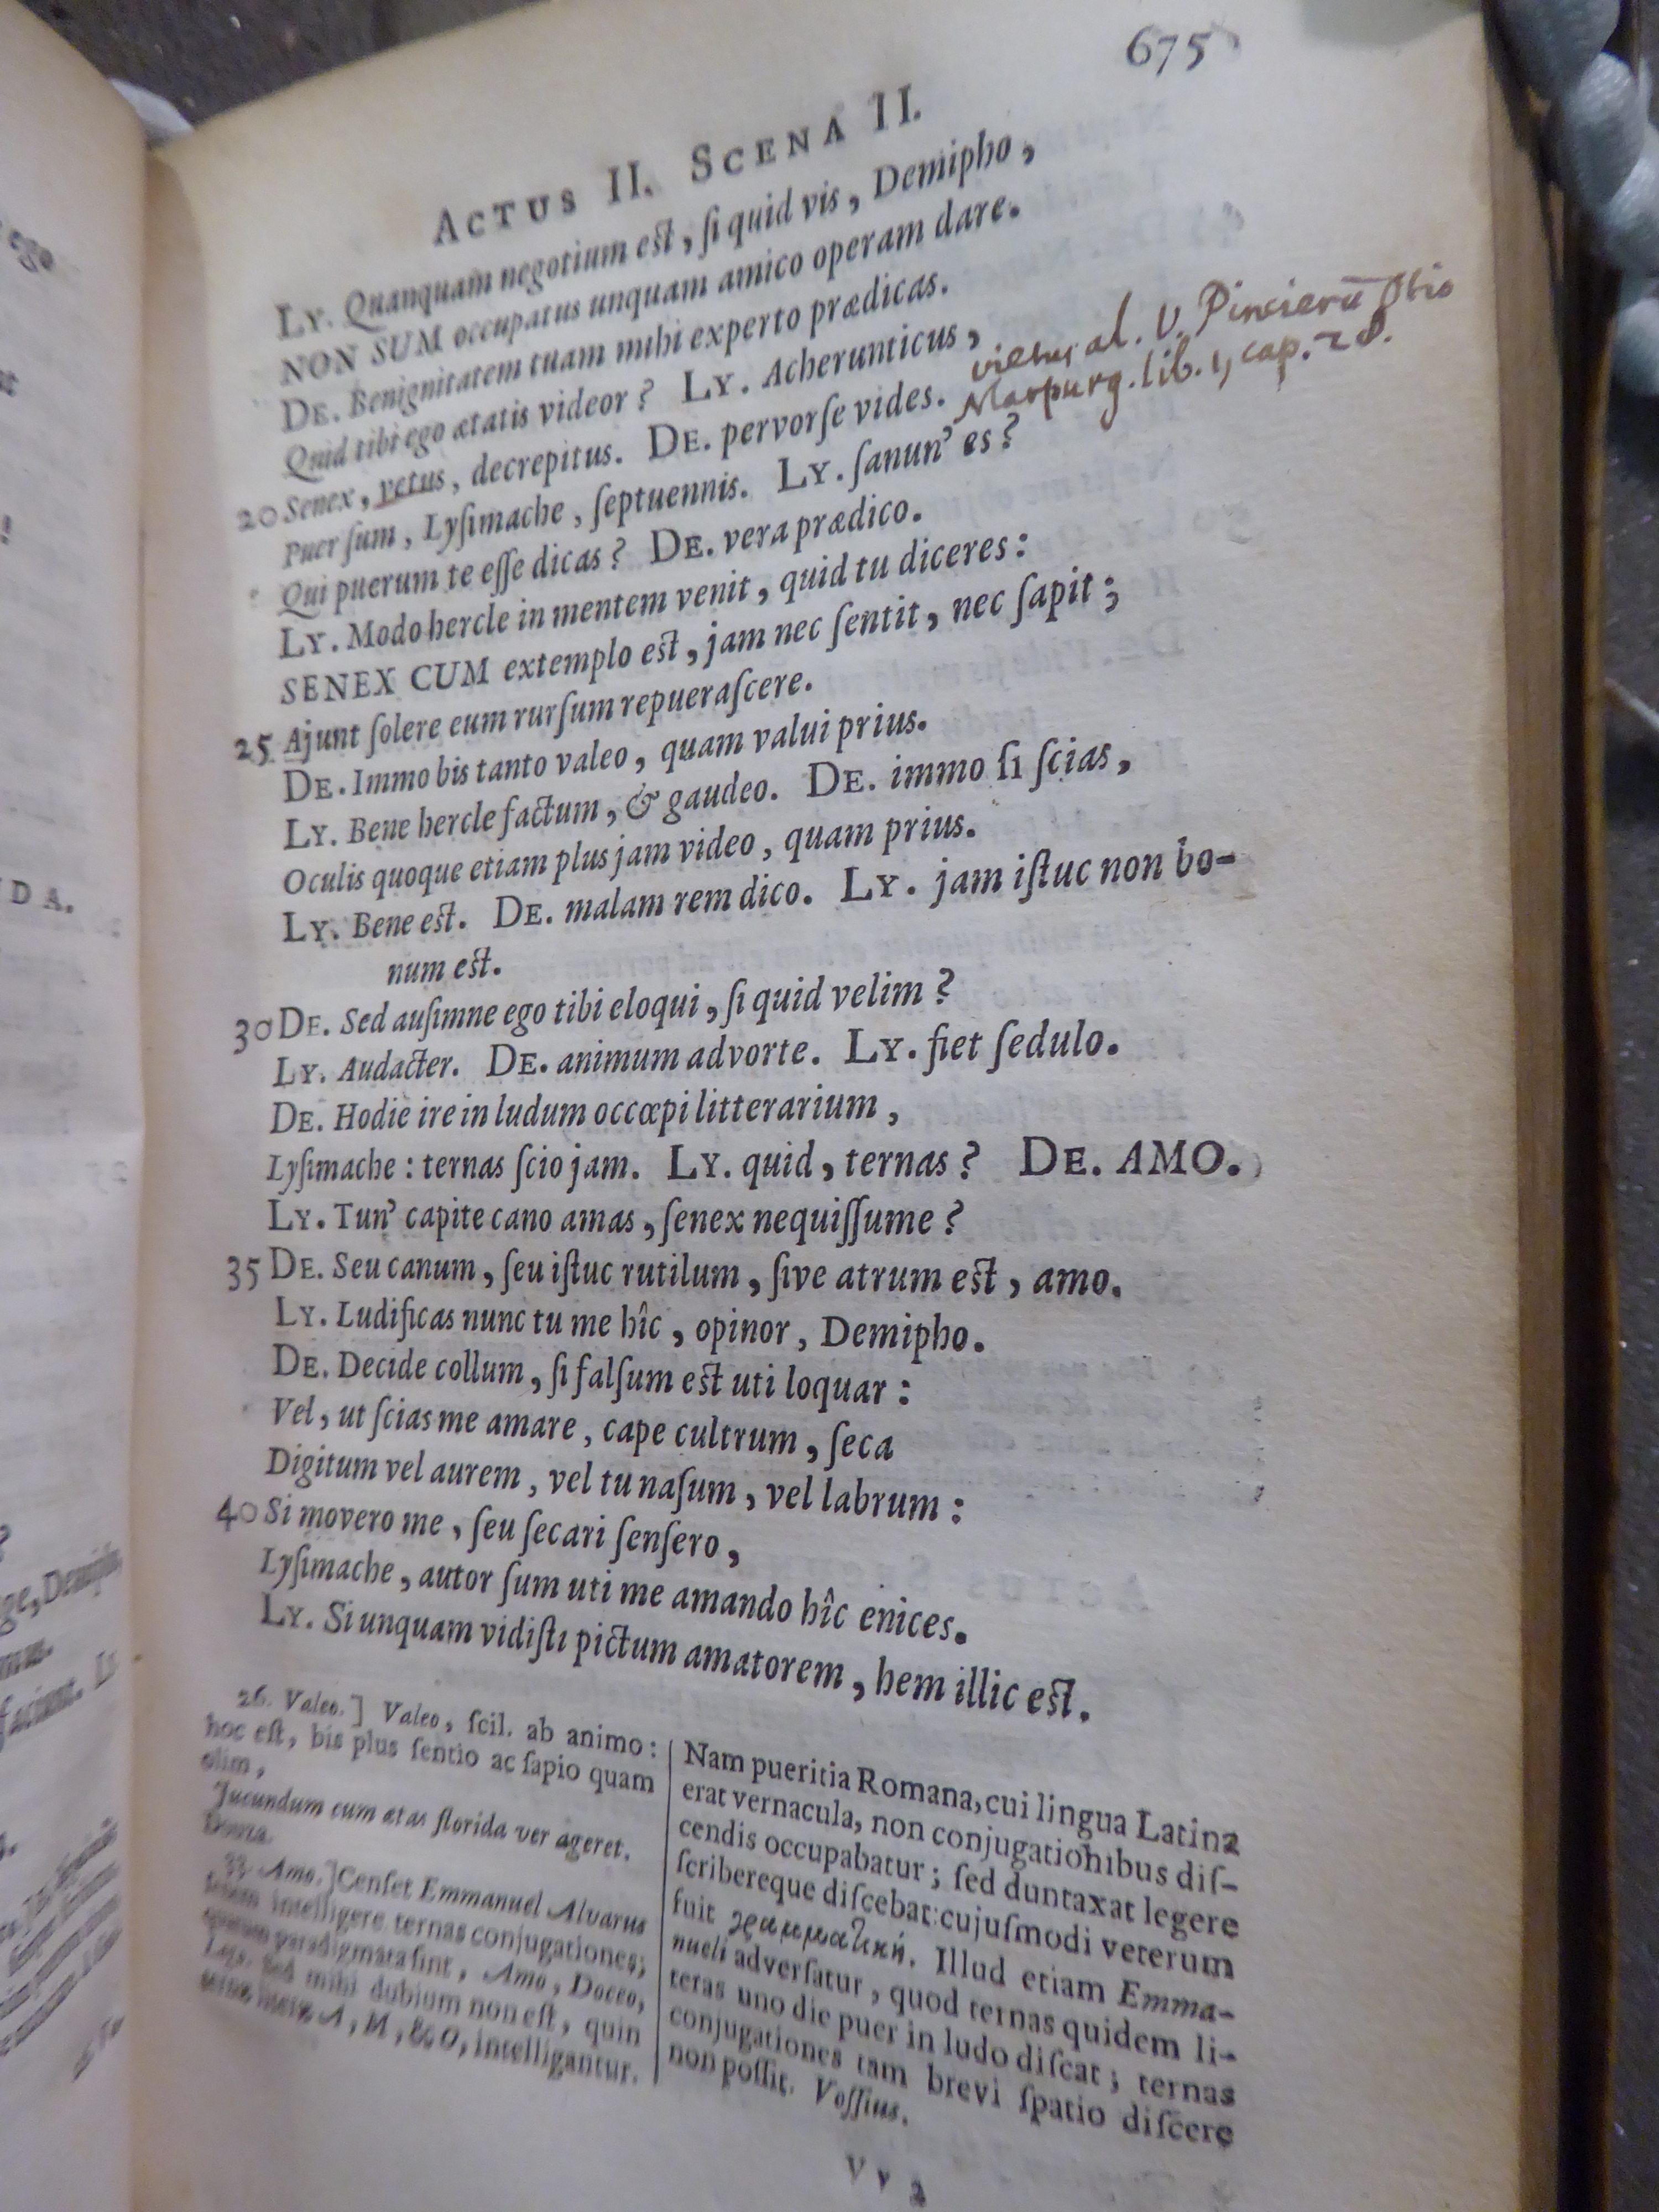 675
ACTUS II. SCENA II.
LY. Quanquam negotium est, ſi quid vis, Demipho,
NON SUM occupatus unquam amico operam dare.
DE. Benignitatem tuam mihi experto prædicas.
Quid tibi ego ætatis videor? LY. Acherunticus,
20 Senex, vetus, decrepitus. DE. pervorſe vides.
vietus al. V. Pincierū Otio
Marpurg. lib. 1, cap. 28.
Puer ſum, Lyſimache, ſeptuennis. LY. ſanun' es?
Qui puerum te eſſe dicas? DE. vera prædico.
LY. Modo hercle in mentem venit, quid tu diceres:
SENEX CUM extemplo est, jam nec ſentit, nec ſapit;
25 Ajunt ſolere eum rurſum repueraſcere.
DE. Immo bis tanto valeo, quam valui prius.
LY. Bene hercle factum, & gaudeo. DE. immo ſi ſcias,
Oculis quoque etiam plus jam video, quam prius.
LY. Bene est. DE. malam rem dico. LY. jam iſtuc non bo-
num est.
30 DE. Sed auſimne ego tibi eloqui, ſi quid velim?
LY. Audacter. DE. animum advorte. LY. fiet ſedulo.
DE. Hodie ire in ludum occœpi litterarium,
Lyſimache: ternas ſcio jam. LY. quid, ternas? DE. AMO.
LY. Tun' capite cano amas, ſenex nequiſſume?
35 DE. Seu canum, ſeu iſtuc rutilum, ſive atrum est, amo.
LY. Ludificas nunc tu me hîc, opinor, Demipho.
DE. Decide collum, ſi falſum est uti loquar:
Vel, ut ſcias me amare, cape cultrum, ſeca
Digitum vel aurem, vel tu naſum, vel labrum:
40 Si movero me, ſeu ſecari ſenſero,
Lyſimache, autor ſum uti me amando hîc enices.
LY. Si unquam vidiſti pictum amatorem, hem illic est.
26. Valeo.] Valeo, ſcil. ab animo:
hoc eſt, bis plus ſentio ac ſapio quam
olim,
Jucundum cum ætas florida ver ageret.
33. Amo.] Cenſet Emmanuel Alvarus
intelligere ternas conjugationes;
quarum paradigmata ſint, Amo, Doceo,
Lego. ſed mihi dubium non eſt, quin
A, M, & O, intelligantur.
Nam pueritia Romana, cui lingua Latina
erat vernacula, non conjugationibus diſ-
cendis occupabatur; ſed duntaxat legere
ſcribereque diſcebat: cujuſmodi veterum
fuit γραμματική. Illud etiam Emma-
nueli adverſatur, quod ternas quidem li-
teras uno die puer in ludo diſcat; ternas
conjugationes tam brevi ſpatio diſcere
non poſſit. Voſſius.
V v 2